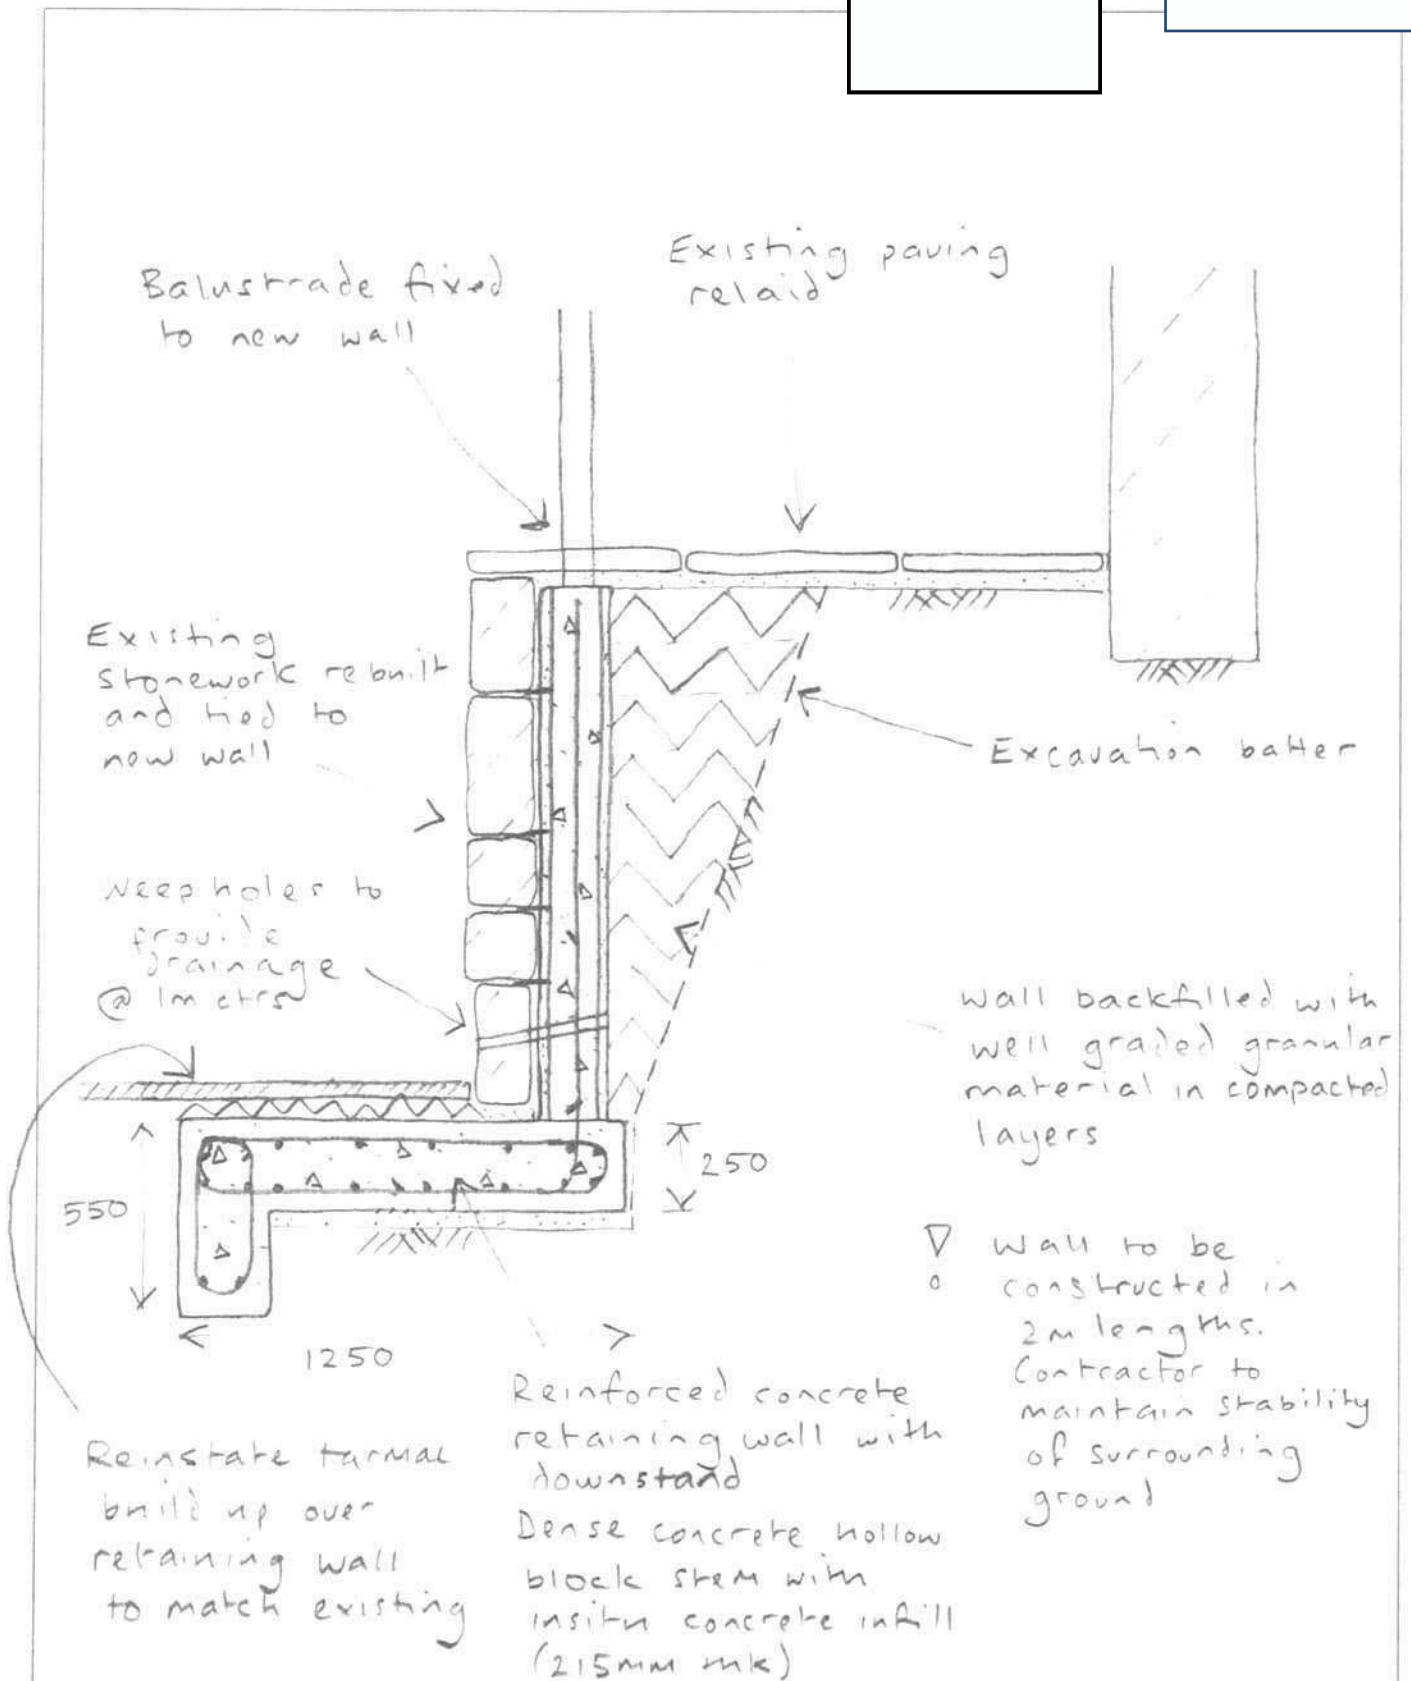 Balustrade fixed
to new wall
Existing paving
relaid
Existing
stonework rebuilt
and tied to
new wall
Excavation batter
Weep holes to
provide
drainage
@ 1m ctrs
Wall backfilled with
well graded granular
material in compacted
layers
550
250
1250
Wall to be
constructed in
2m lengths.
Contractor to
maintain stability
of surrounding
ground
Reinstate tarmac
build up over
retaining wall
to match existing
Reinforced concrete
retaining wall with
downstand
Dense concrete hollow
block stem with
insitu concrete infill
(215mm thk)